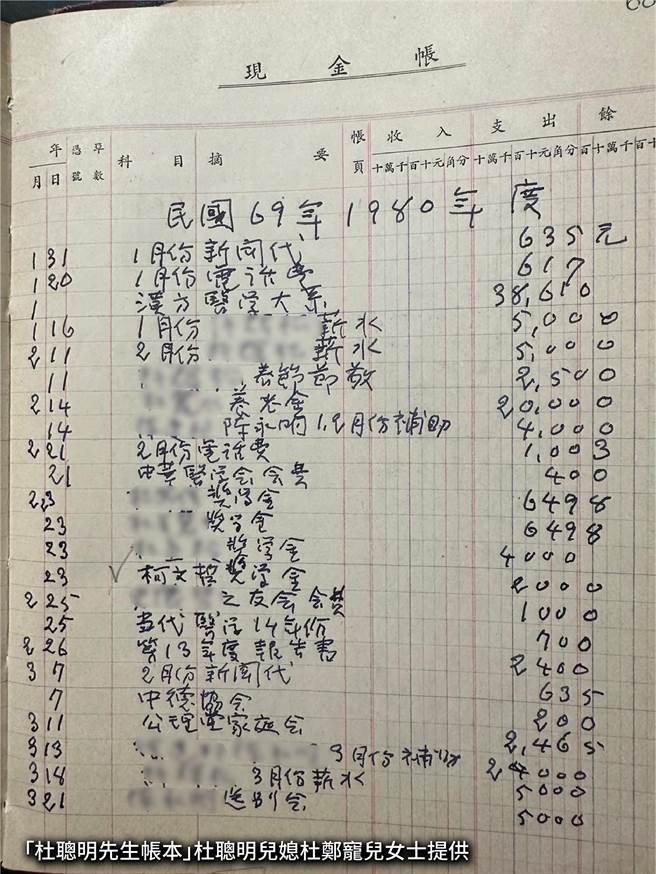 現金帳
年 憑單 科目 摘要 帳 收入 支出 餘
月 日 號數 頁 十萬千百十元角分 十萬千百十元角分 十萬千百十
民國69年1980年度
1 31 1月份新聞代 635元
1 20 1月份電話費 617
1 漢方醫学大系 38,610
1 16 1月份 薪水 5,000
2 11 2月份 薪水 5,000
11 春節節敬 2,500
2 14 養老金 20,000
14 1,2月份補助 4,000
2 21 2月份電話費 1,003
21 中華醫学会会費 400
2 23 獎学金 6498
23 獎学金 6498
23 獎学金 4000
23 柯文哲獎学金 2000
2 25 之友会会費 1000
25 当代醫学14年份 700
2 26 第13年度報告書 2400
3 7 2月份新聞代 635
7 中德協会 200
3 11 公理堂家庭会 2,465
3 13 3月份補助 4000
3 18 3月份薪水 5000
3 21 送別会 5000
「杜聰明先生帳本」杜聰明兒媳杜鄭寵兒女士提供